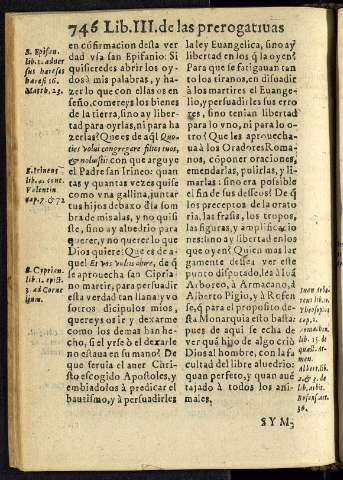 746 Lib. III. de las prerogatiuas
S. Epifan.
lib. 1. aduer
sus hæreses
hæresi 16.
Matth. 23.
S. Irineus
lib. 4. cont.
Valentin
cap. 7. & 72
S. Cyprian.
lib. 1. epist.
3. ad Corne
lium.
en cõfirmacion desta ver
dad vsa san Epifanio: Si
quisieredes abrir los oy-
dos à mis palabras, y ha-
zer lo que con ellas os en
seño, comereys los bienes
de la tierra, sino ay liber-
tad para oyrlas, ni para ha
zerlas? Que es de aql Quo-
ties volui congregare filios tuos,
& noluisti: con que arguye
el Padre san Irineo: quan
tas y quantas vezes quise
como vna gallina, juntar
tus hijos debaxo d la som
bra de mis alas, y no quisi
ste, sino ay aluedrio para
querer, y no querer lo que
Dios quiere: Que es de a-
quel Et vos vultis abire, de q
se aprouecha san Cipria
no martir, para persuadir
esta verdad tan llana: y vo
sotros dicipulos mios,
quereys os ir y dexarme
como los demas han he-
cho, si el yrse ò el dexarle
no estaua en su mano? De
que seruia el auer Chri-
sto escogido Apostoles, y
embiadolos à predicar el
bautismo, y à persuadirles
la ley Euangelica, sino ay
libertad en los q la oyen?
Para que se fatiguan tan
to los tiranos, en disuadir
à los martires el Euange-
lio, y persuadirles sus erro
res, sino tenian libertad
para lo vno, ni para lo o-
tro? Que les aprouecha-
ua à los Oradores Roma-
nos, cõponer oraciones,
emendarlas, pulirlas, y li-
marlas: sino era possible
el fin de sus desseos? De q
los preceptos de la orato
ria, las frasis, los tropos,
las figuras, y amplificacio
nes: sino ay libertad en los
que oyen? Quien mas lar
gamente dessea ver este
punto disputado, lea à Iuã
Arboreo, à Armacano, à
Alberto Pigio, y à Rofen
se, q para el proposito de-
sta Monarquia esto basta:
pues de aqui se echa de
ver quã hijo de algo criò
Dios al hombre, con la fa
cultad del libre aluedrio:
quan perfeto, y quan auẽ
tajado à todos los ani-
males.
Iuan Arbo
reus lib. 10.
Theosophiæ
cap. 2.
Armachan.
lib. 15. de
quæst. Ar-
men.
Albert. lib.
2. & 3. de
lib. arbit.
Rofens. art.
36.
SYM;